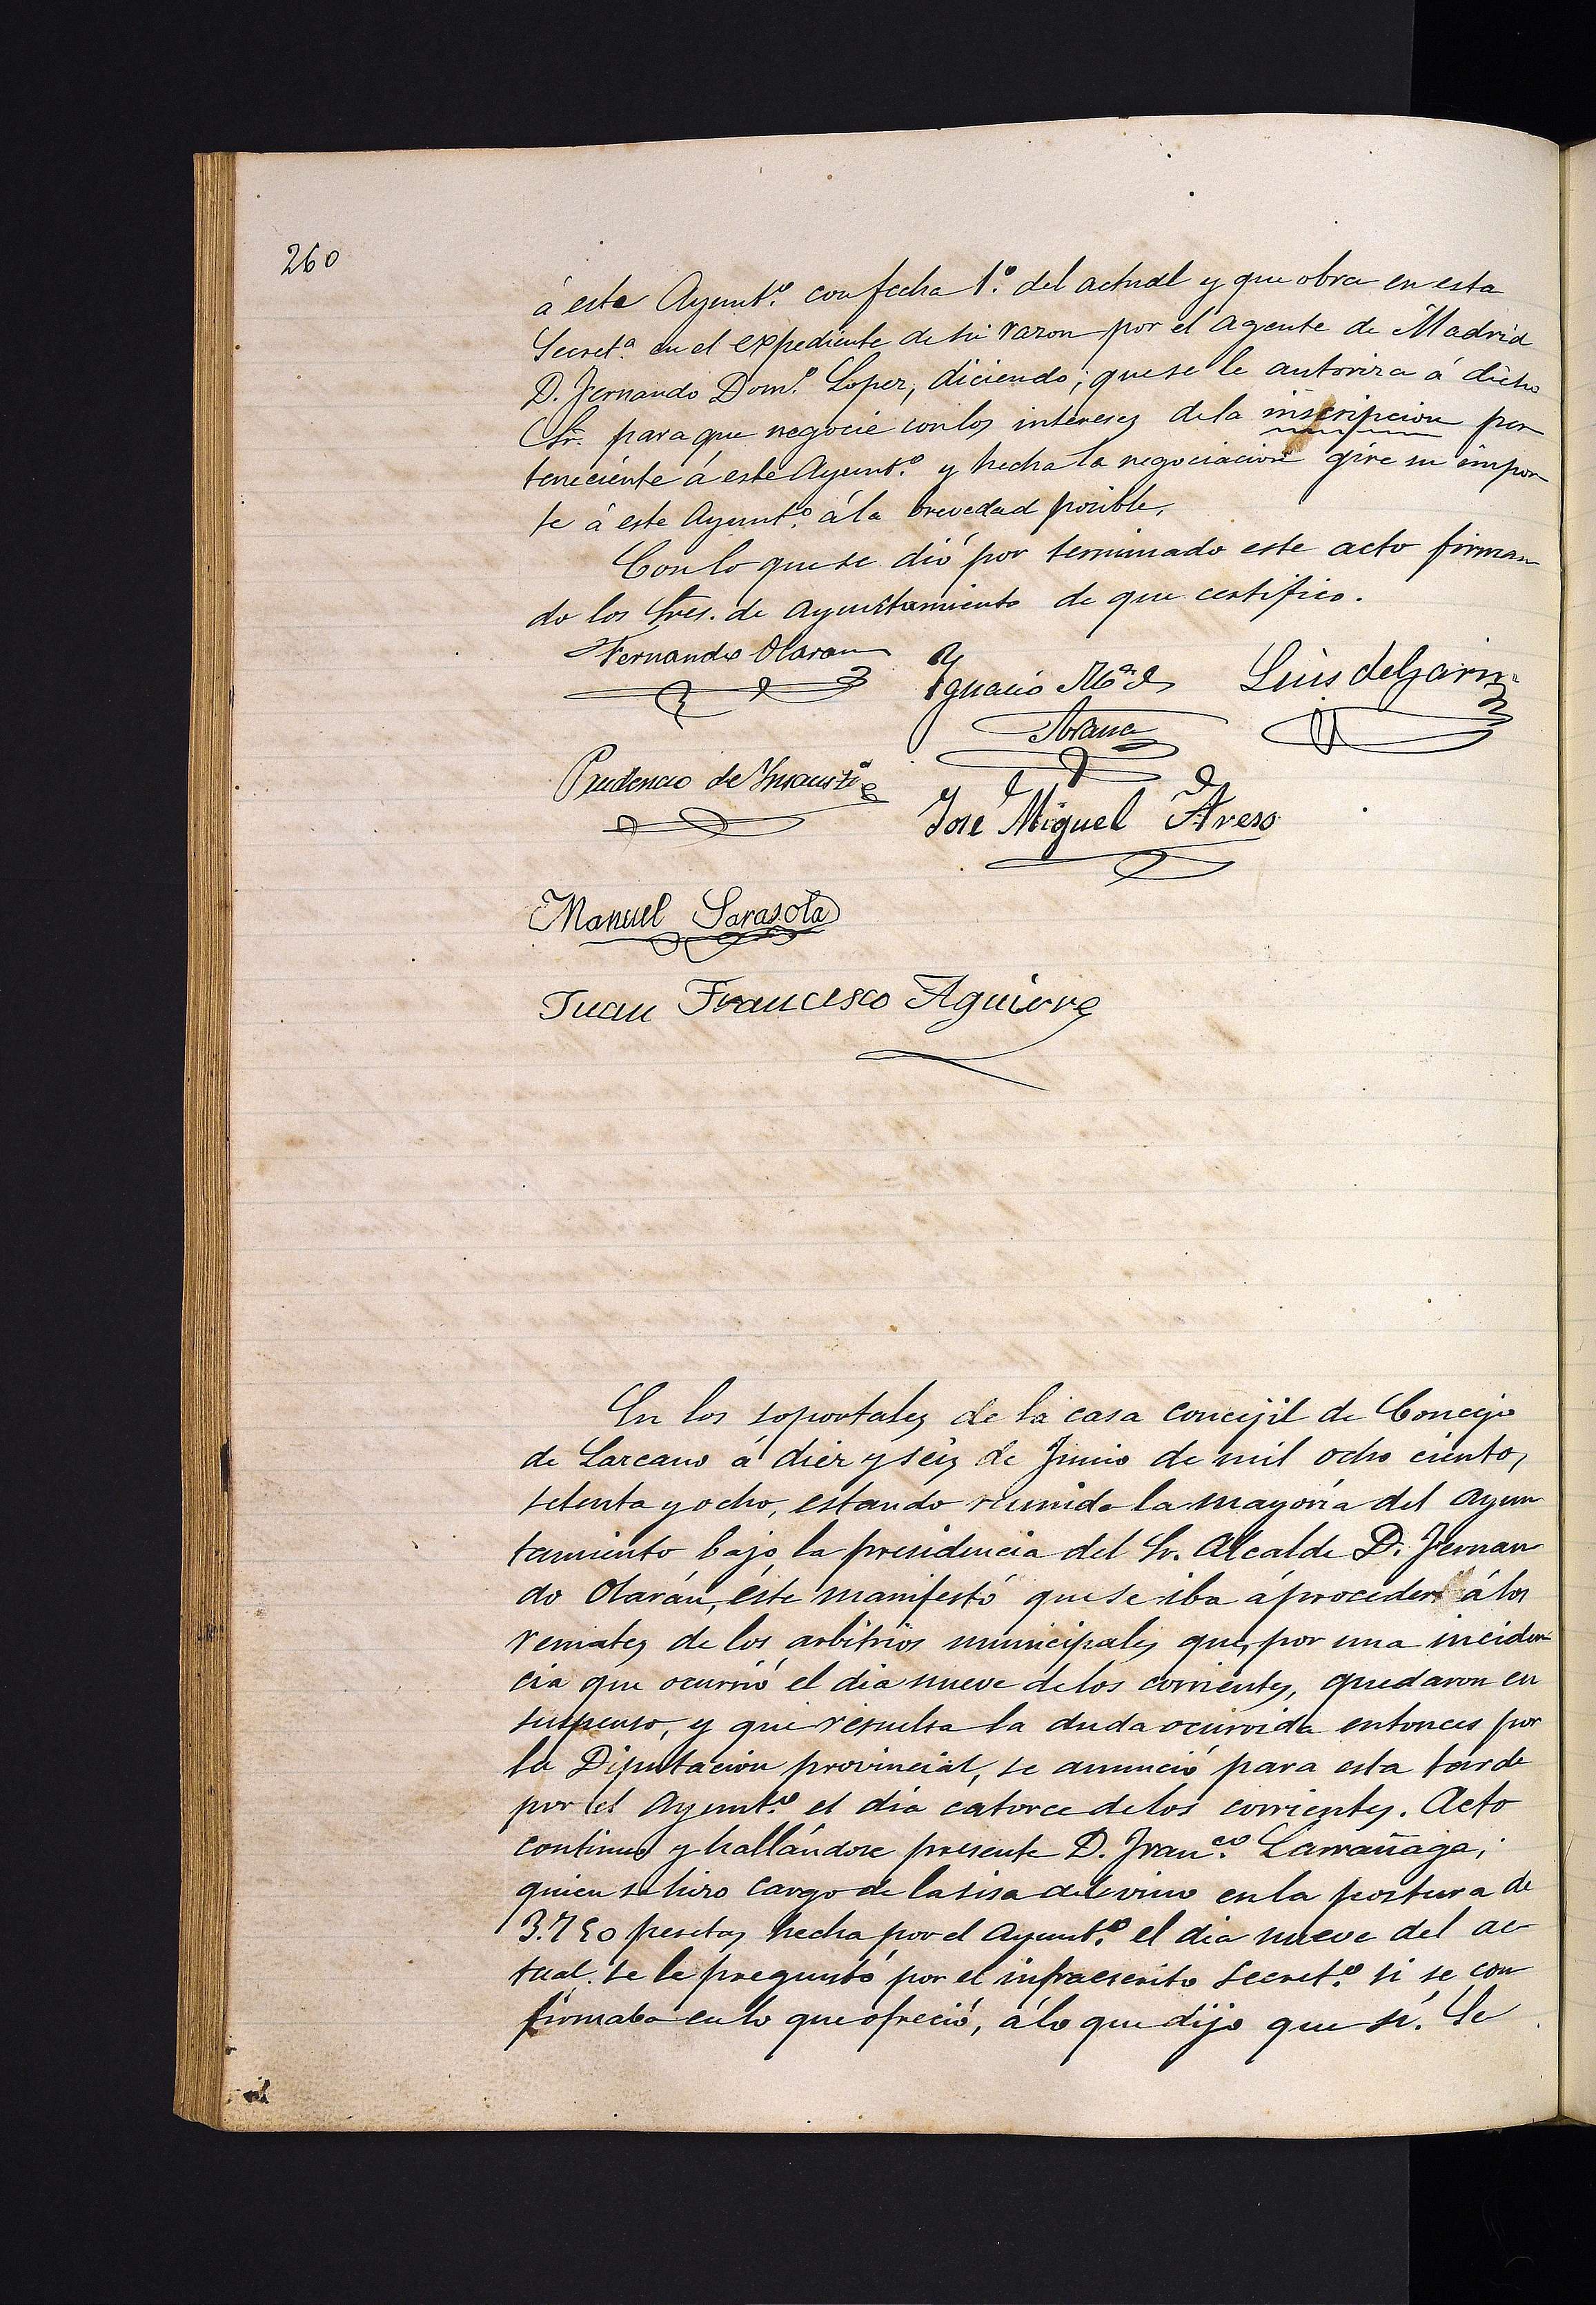 260
á este Ayunt.º con fecha 1.º del actual y que obra en esta
Secret.ª en el expediente de su razon por el agente de Madrid
D. Fernando Dom.º Lopez, diciendo; que se le autoriza á dicho
Sr. para que negocie con los intereses de la inscripcion per
teneciente á este Ayunt.º y hecha la negociacion gire su impor
te á este Ayunt.º á la brevedad posible.
Con lo que se dió por terminado este acto firman
do los Sres. de Ayuntamiento de que certifico.
Fernando Olaran
Ignacio M.ª de
Arana
Luis de Garin
Prudencio de Insausti
José Miguel Areso
Manuel Sarasola
Juan Francisco Aguirre
En los soportales de la casa concejil de Concejo
de Lazcano á diez y seis de Junio de mil ocho cientos
setenta y ocho, estando reunida la mayoría del Ayun
tamiento bajo la presidencia del Sr. Alcalde D. Fernan
do Olarán, éste manifestó que se iba á proceder á los
remates de los arbitrios municipales que, por una inciden
cia que ocurrió el dia nueve de los corrientes, quedaron en
suspenso, y que resuelta la duda ocurrida entonces por
la Diputacion provincial, se anunció para esta tarde
por el Ayunt.º el día catorce de los corrientes. Acto
continuo y hallándose presente D. Fran.co Larrañaga;
quien se hizo cargo de la sisa del vino en la postura de
3.750 pesetas hecha por el Ayunt.º el dia nueve del ac
tual. se le preguntó por el infraescrito Secret.º si se con
firmaba en lo que ofreció, á lo que dijo que sí. Se